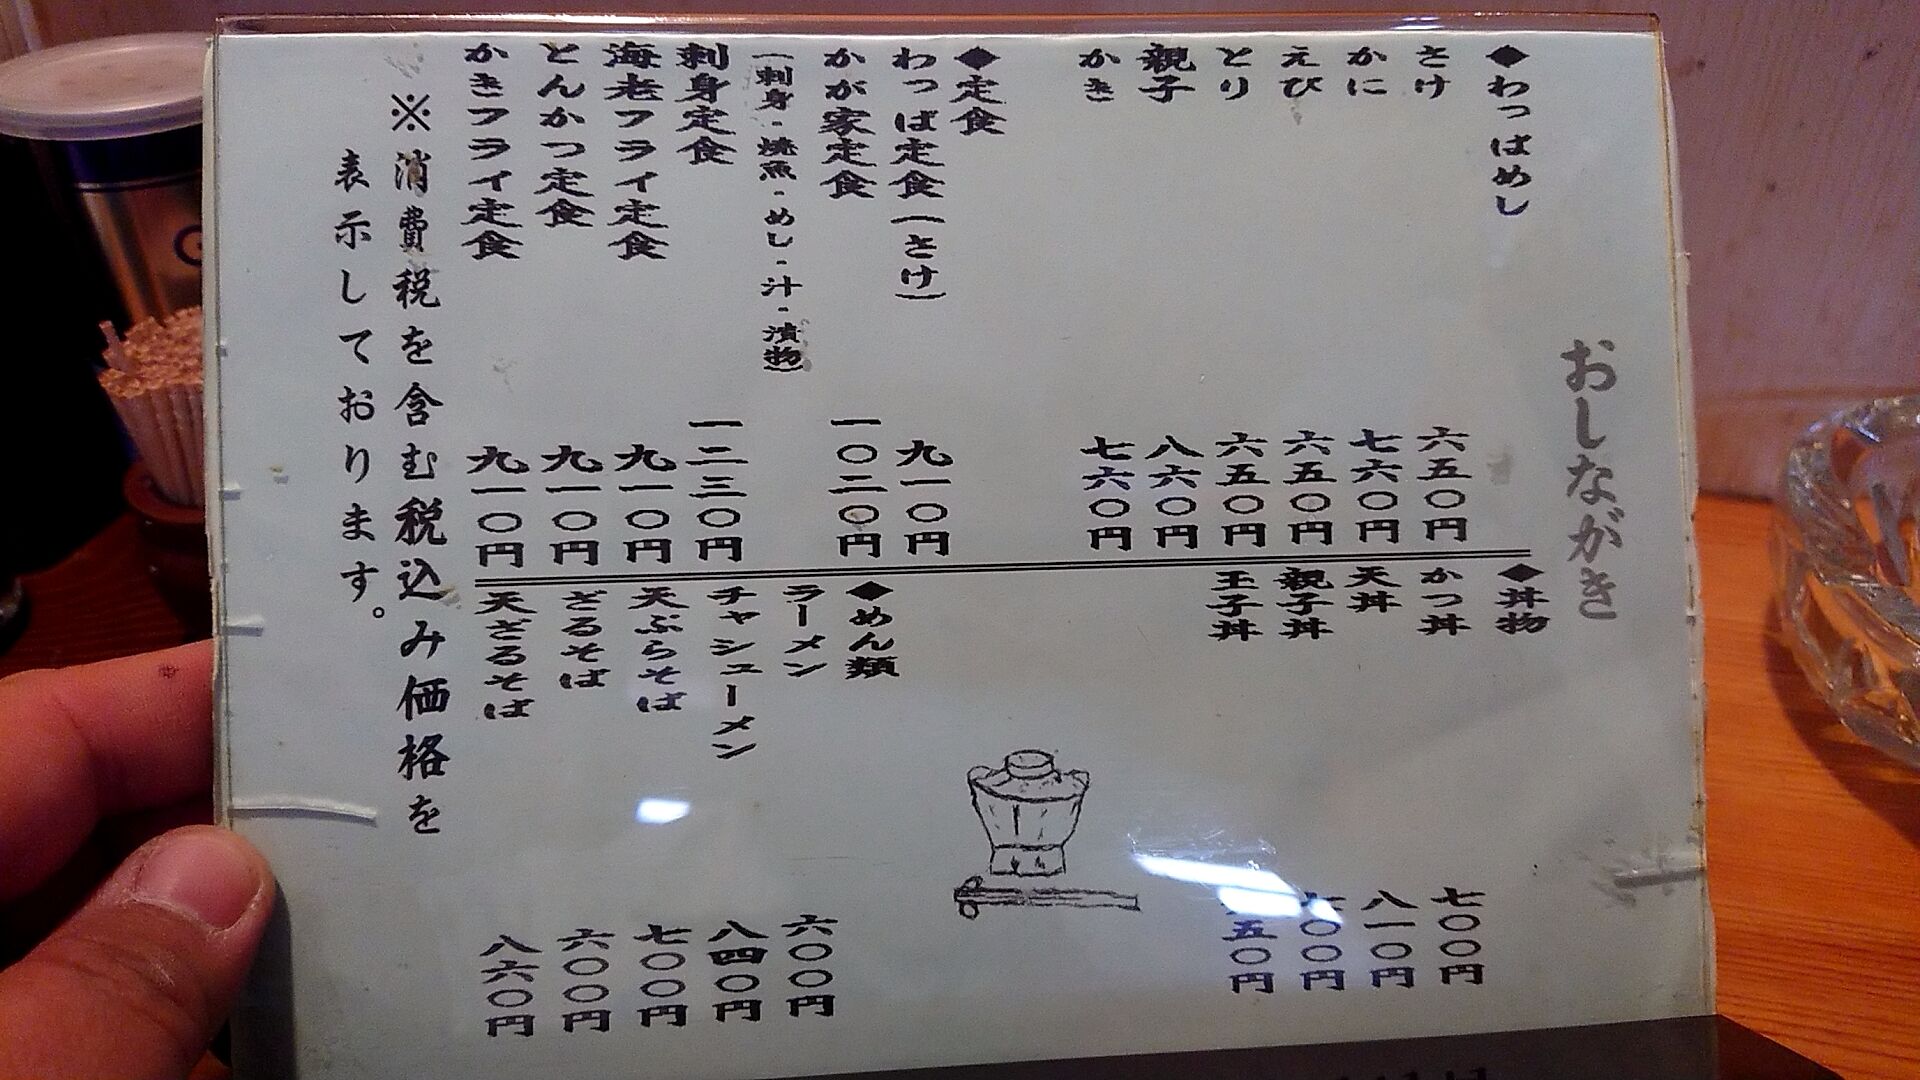 おしながき
◆わっぱめし
さけ 六五〇円
かに 七六〇円
えび 六五〇円
とり 六五〇円
親子 八六〇円
かき 七六〇円
◆定食
わっぱ定食(さけ) 九一〇円
かが家定食 一〇二〇円
(刺身・焼魚・めし・汁・漬物)
刺身定食 一二三〇円
海老フライ定食 九一〇円
とんかつ定食 九一〇円
かきフライ定食 九一〇円
◆丼物
かつ丼 七〇〇円
天丼 八一〇円
親子丼 七〇〇円
玉子丼 五〇円
◆めん類
ラーメン 六〇〇円
チャシューメン 八四〇円
天ぷらそば 七〇〇円
ざるそば 六〇〇円
天ざるそば 八六〇円
※消費税を含む税込み価格を
表示しております。